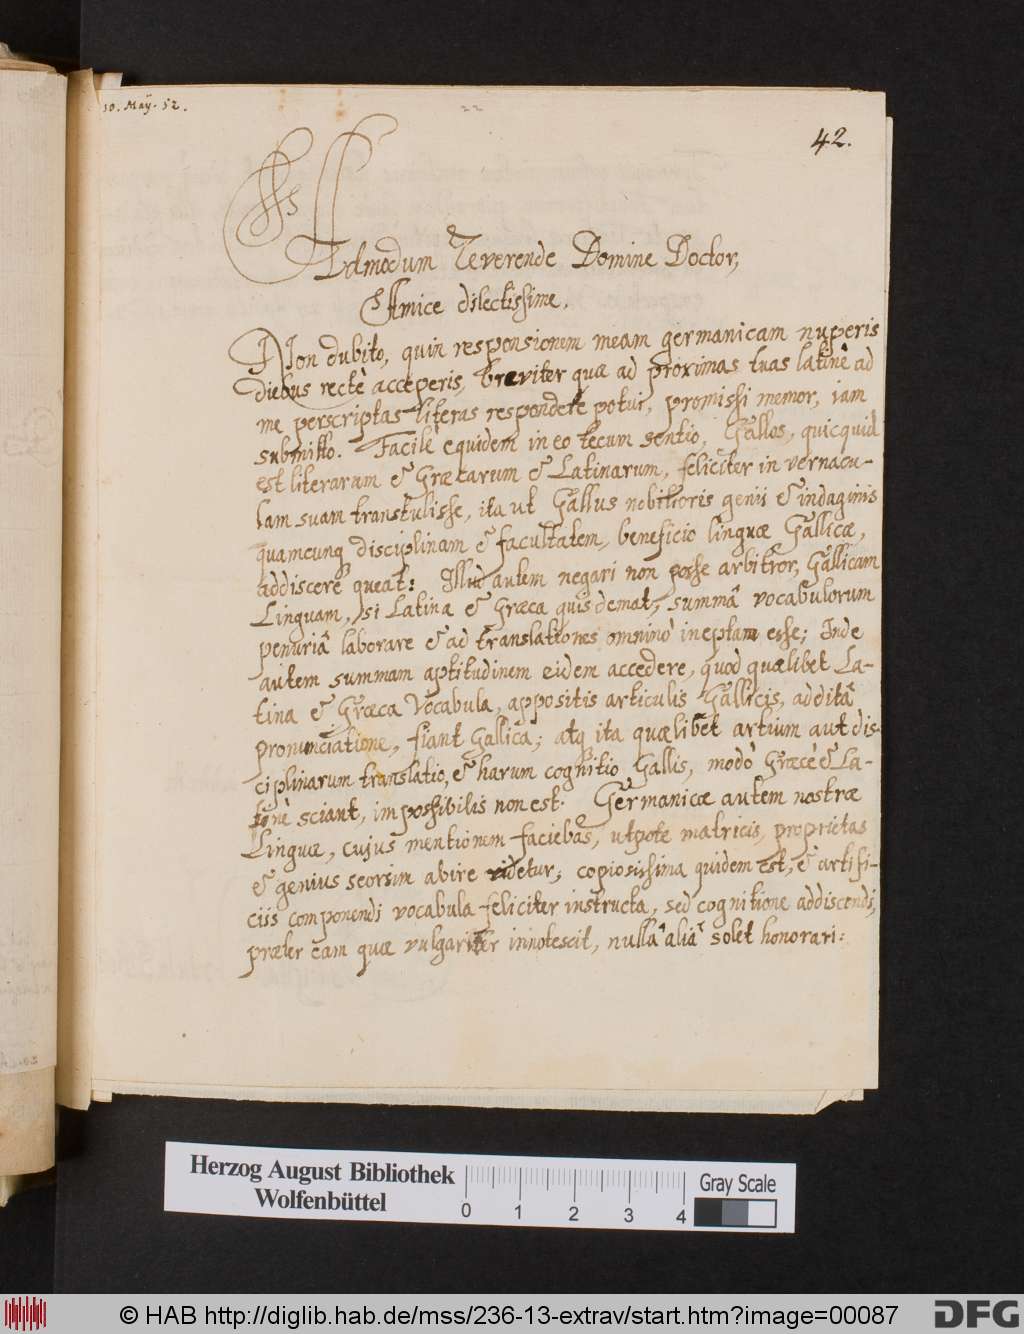 10. Maÿ. 52.
22
42.
Admodum Reverende Domine Doctor,
Amice dilectissime.
Non dubito, quin responsionem meam germanicam nuperis
diebus rectè acceperis, breviter quæ ad proximas tuas latinè ad
me perscriptas literas respondere potui, promissi memor, iam
submitto. Facile equidem in eo tecum sentio, Gallos, quicquid
est literarum & Græcarum & Latinarum, feliciter in vernacu-
lam suam transtulisse, ita ut Gallus nobilioris genii & indaginis
quamcunq disciplinam & facultatem, beneficio linguæ Gallicæ,
addiscere queat: Illud autem negari non posse arbitror, Gallicam
Linguam, si Latina & Græca quis demat, summâ vocabulorum
penuriâ laborare & ad translationes omninò ineptam esse; Inde
autem summam aptitudinem eidem accedere, quod quælibet La-
tina & Græca Vocabula, appositis articulis Gallicis, additâ
pronunciatione, fiant Gallica; atq ita quælibet artium aut dis-
ciplinarum translatio, & harum cognitio Gallis, modò Græcè & La-
tinè sciant, impossibilis non est. Germanicæ autem nostræ
Linguæ, cujus mentionem faciebas, utpote matricis, proprietas
& genius seorsim abire videtur; copiosissima quidem est, & artifi-
ciis componendi vocabula feliciter instructa, sed cognitione addiscendi,
præter eam quæ vulgariter innotescit, nullâ aliâ solet honorari:
Herzog August Bibliothek
Wolfenbüttel
0 1 2 3 4
Gray Scale
© HAB http://diglib.hab.de/mss/236-13-extrav/start.htm?image=00087
DFG